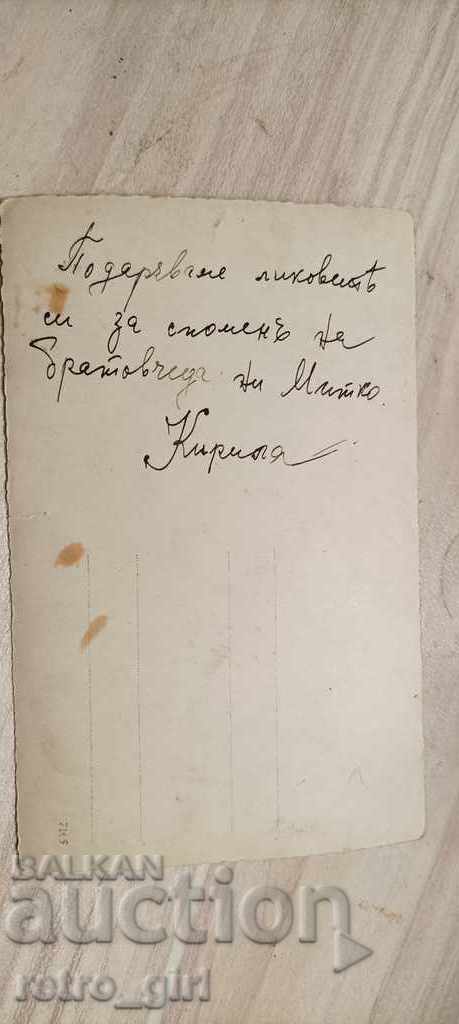 Подаряваме ликоветѣ
си за споменъ на
братовчеда ни Митко.
BALKAN
auction
retro_girl